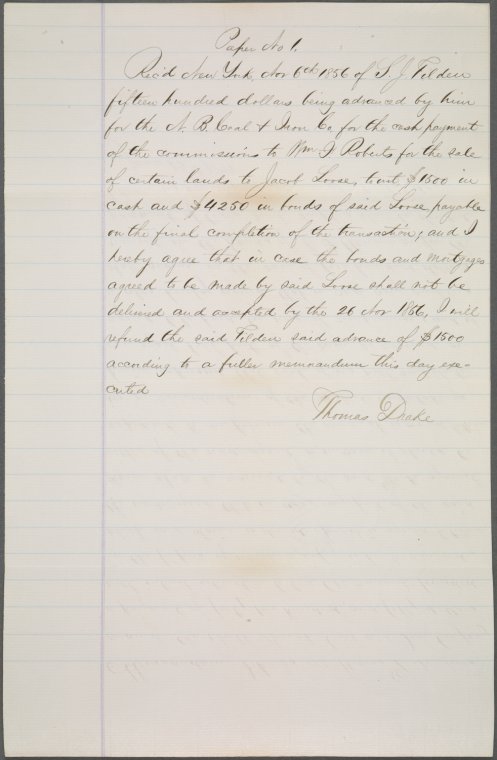 Paper No 1.
Rec'd New York, Nov 6th 1856 of S. J. Tilden
fifteen hundred dollars being advanced by him
for the N. B. Coal & Iron Co. for the cash payment
of the commissions to Wm I Roberts for the sale
of certain lands to Jacob Loose, towit $1500 in
cash and $4250 in bonds of said Loose payable
on the final completion of the transaction; and I
hereby agree that in case the bonds and mortgages
agreed to be made by said Loose shall not be
delivered and accepted by the 26 Nov 1856, I will
refund the said Tilden said advance of $1500
according to a fuller memorandum this day exe-
cuted
Thomas Drake